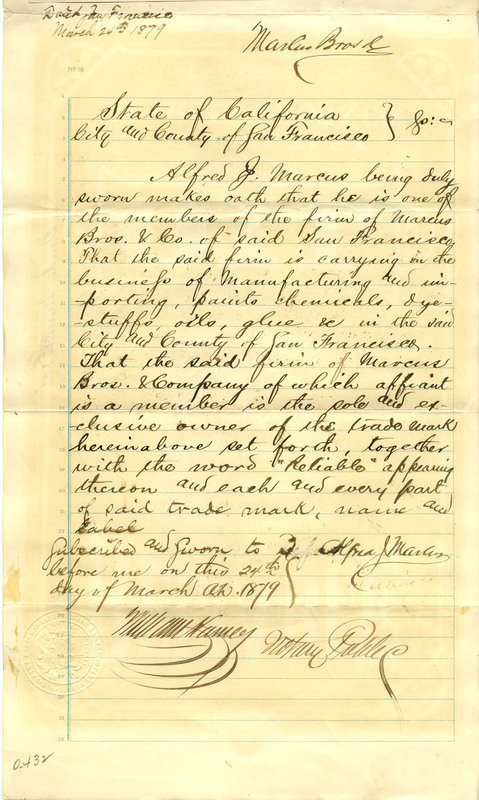 Dated San Francisco
March 24th 1879
Marcus Bros &
No 36
State of California
City and County of San Francisco } SS:
Alfred J. Marcus being duly
sworn makes oath that he is one of
the members of the firm of Marcus
Bros. & Co. of said San Francisco,
That the said firm is carrying on the
business of Manufacturing and im-
-porting, paints chemicals, dye-
-stuffs, oils, glue &c in the said
City and County of San Francisco.
That the said firm of Marcus
Bros. & Company of which affiant
is a member is the sole and ex-
clusive owner of the trade mark
hereinabove set forth, together
with the word "Reliable" appearing
thereon and each and every part
of said trade mark, name and
Label
Subscribed and Sworn to } Alfred J Marcus
before me on this 24th
day of March AD. 1879
William Harney
Notary Public
0.432